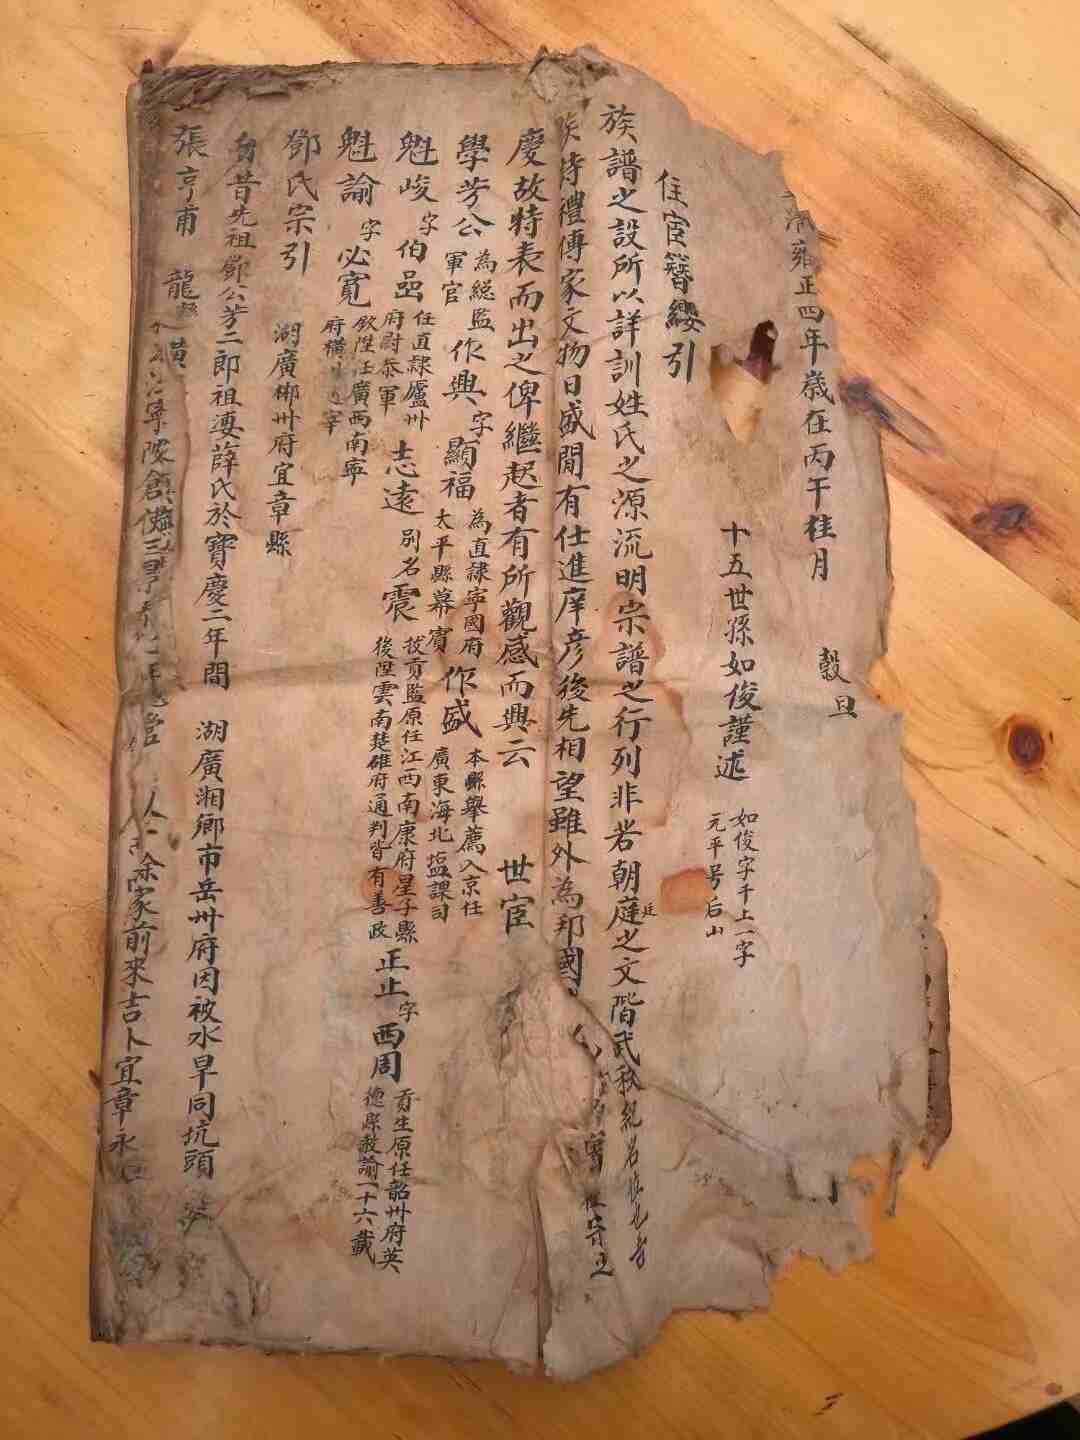 清雍正四年歲在丙午桂月 穀旦
十五世孫如俊謹述 如俊字千上一字元平号后山
仕宦簪纓引
族譜之設所以詳訓姓氏之源流明宗譜之行列非若朝庭之文階武秩紀名
廷
族詩禮傳家文物日盛間有仕進庠彦後先相望雖外為邦國
慶故特表而出之俾繼起者有所觀感而興云 世宦
學芳公 為総監軍官 作興 字顯福 為直隷寧國府太平縣幕賓 作盛 本縣舉薦入京任廣東海北塩課司
魁峻 字伯嵒 任直隷廬州府尉叅軍 志遠 別名震 拔貢監原任江西南康府星子縣後陞雲南楚雄府通判皆有善政 正止 字西周 貢生原任韶州府英德縣教諭一十六載
魁諭 字必寛 欽陞任廣西南寧府橫
鄧氏宗引 湖廣郴州府宜章縣
自昔先祖鄧公芳二郎祖婆薛氏於寶慶二年間 湖廣湘鄉市岳州府因被水旱同坑頭
張亨甫 龍 除家前來吉卜宜章永